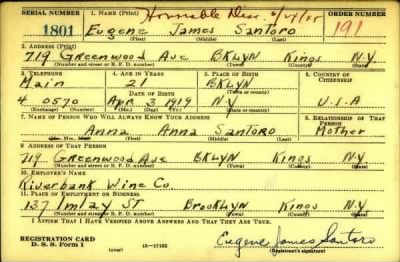 SERIAL NUMBER 1. NAME (Print) Honorable Disc. ORDER NUMBER
1801 Eugene James Santoro 191
(First) (Middle) (Last)
2. ADDRESS (Print)
719 Greenwood Ave BKLYN Kings N.Y.
(Number and street or R. F. D. number) (Town) (County) (State)
3. TELEPHONE 4. AGE IN YEARS 5. PLACE OF BIRTH 6. COUNTRY OF CITIZENSHIP
Main 21 BKLYN
DATE OF BIRTH (Town or county)
4 0570 Apr 3 1919 N.Y U.S.A
7. NAME OF PERSON WHO WILL ALWAYS KNOW YOUR ADDRESS 8. RELATIONSHIP OF THAT PERSON
Anna Anna Santoro Mother
(First) (Middle) (Last)
9. ADDRESS OF THAT PERSON
719 Greenwood Ave BKLYN Kings N.Y
(Number and street or R. F. D. number) (Town) (County) (State)
10. EMPLOYER'S NAME
Riverbank Wine Co.
11. PLACE OF EMPLOYMENT OR BUSINESS
137 Imlay St Brooklyn Kings N.Y
(Number and street or R. F. D. number) (Town) (County) (State)
I AFFIRM THAT I HAVE VERIFIED ABOVE ANSWERS AND THAT THEY ARE TRUE.
REGISTRATION CARD
D. S. S. Form 1 (over) 16—17105 Eugene James Santoro
(Registrant's signature)